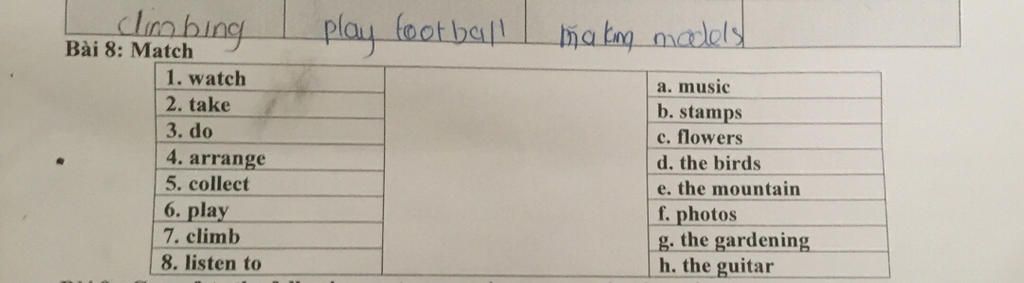 climbing play football making models
Bài 8: Match
1. watch a. music
2. take b. stamps
3. do c. flowers
4. arrange d. the birds
5. collect e. the mountain
6. play f. photos
7. climb g. the gardening
8. listen to h. the guitar